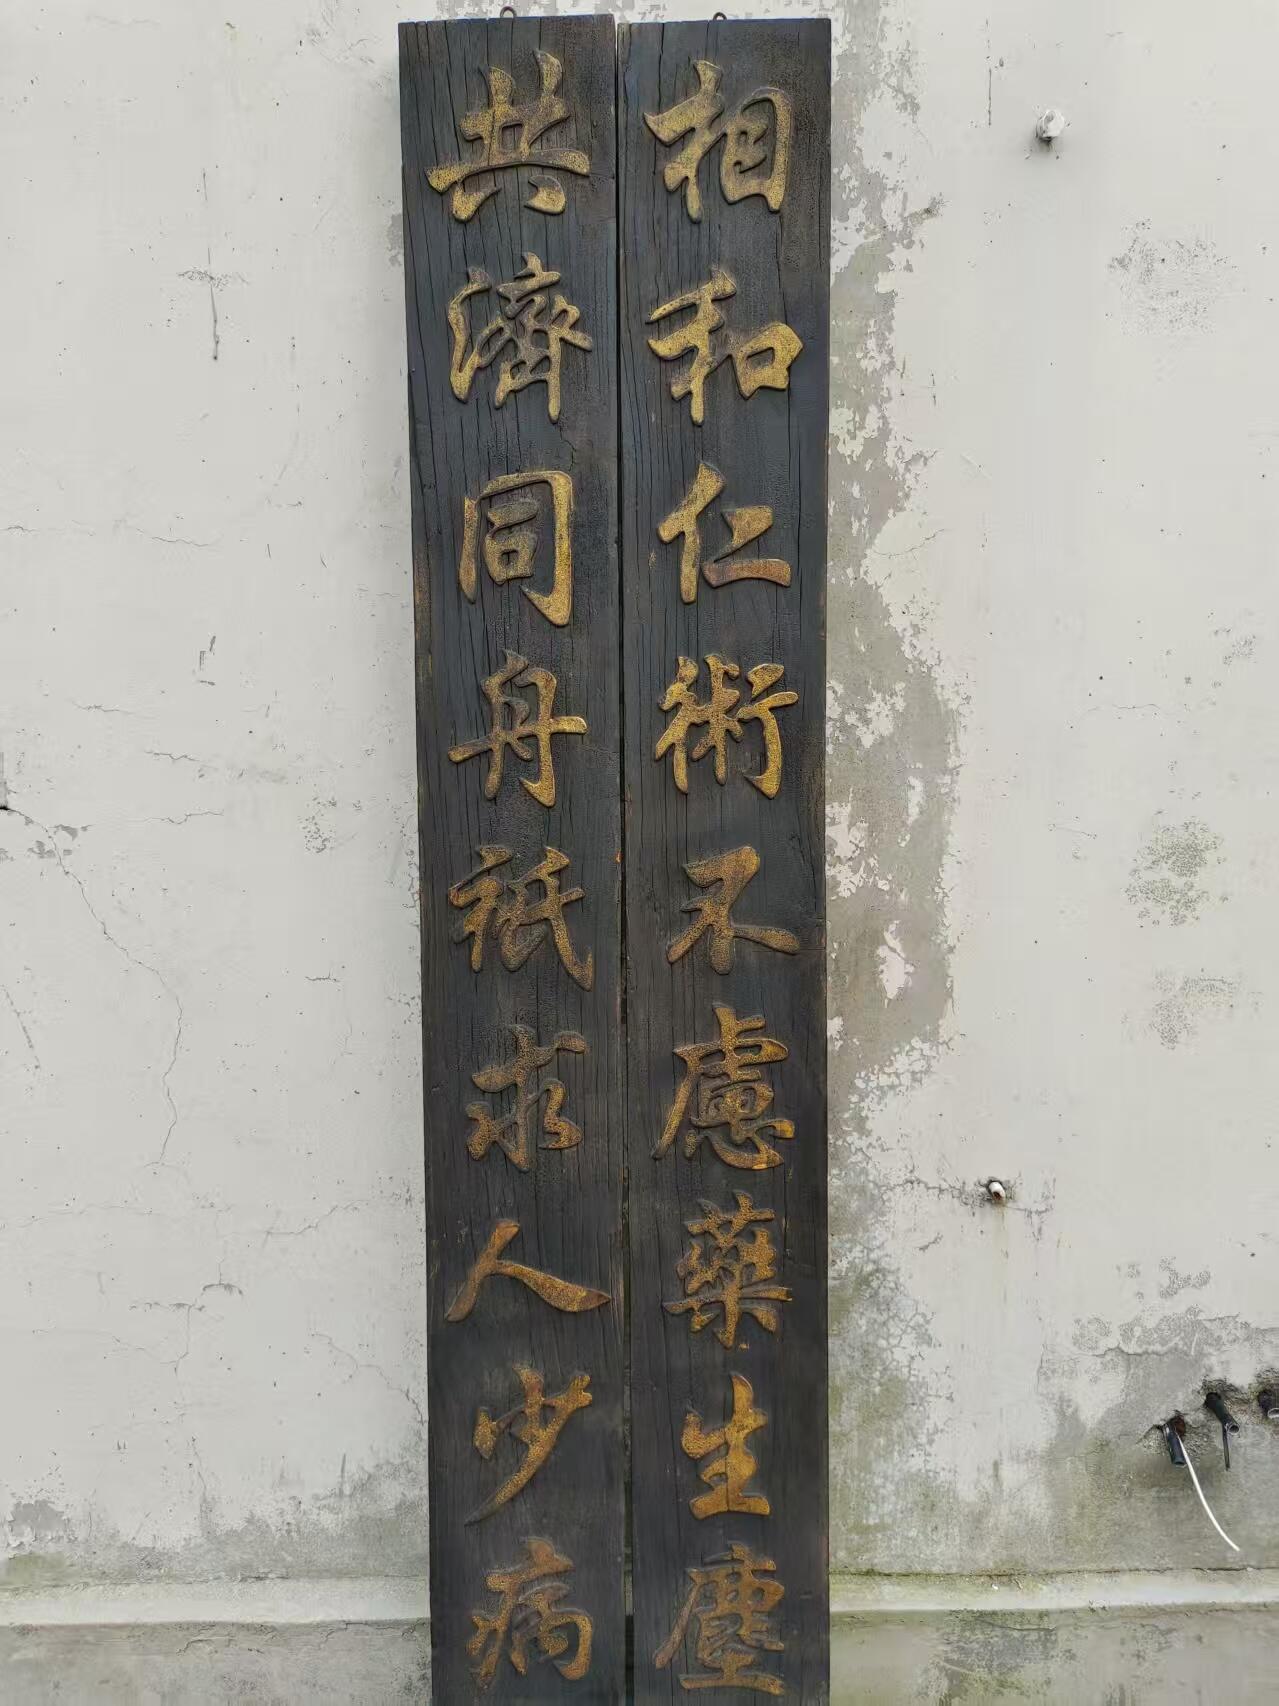 相和仁術不慮藥生塵
共濟同舟祇求人少病